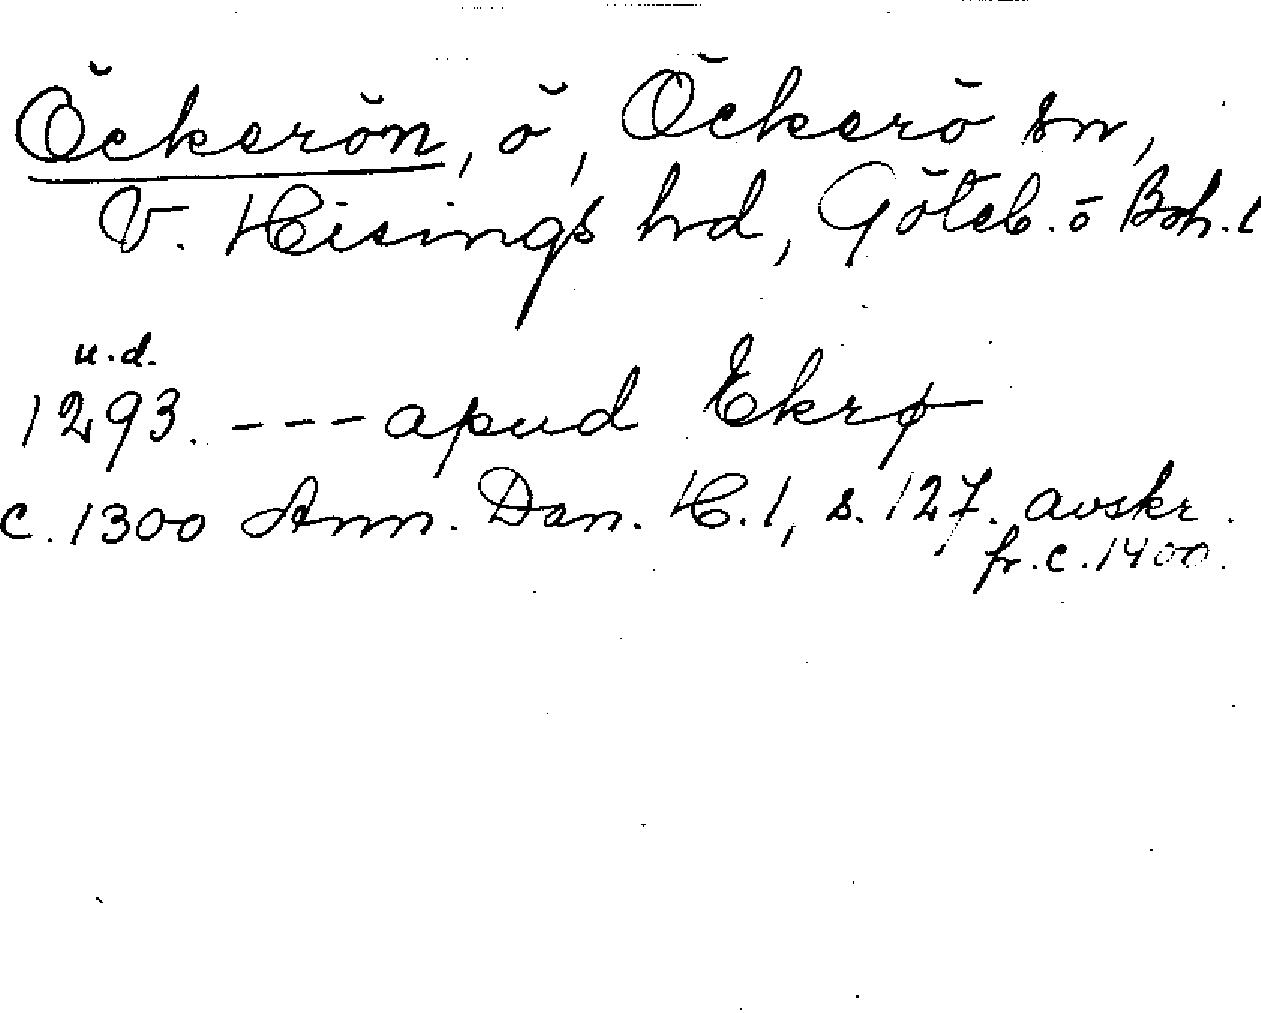 Öckerön, ö, Öckerö sn,
V. Hisings hd, Göteb. o Boh. l
u.d.
1293. --- apud Ekrø
c. 1300 Ann. Dan. H. 1, s. 127. avskr.
fr. c. 1400.